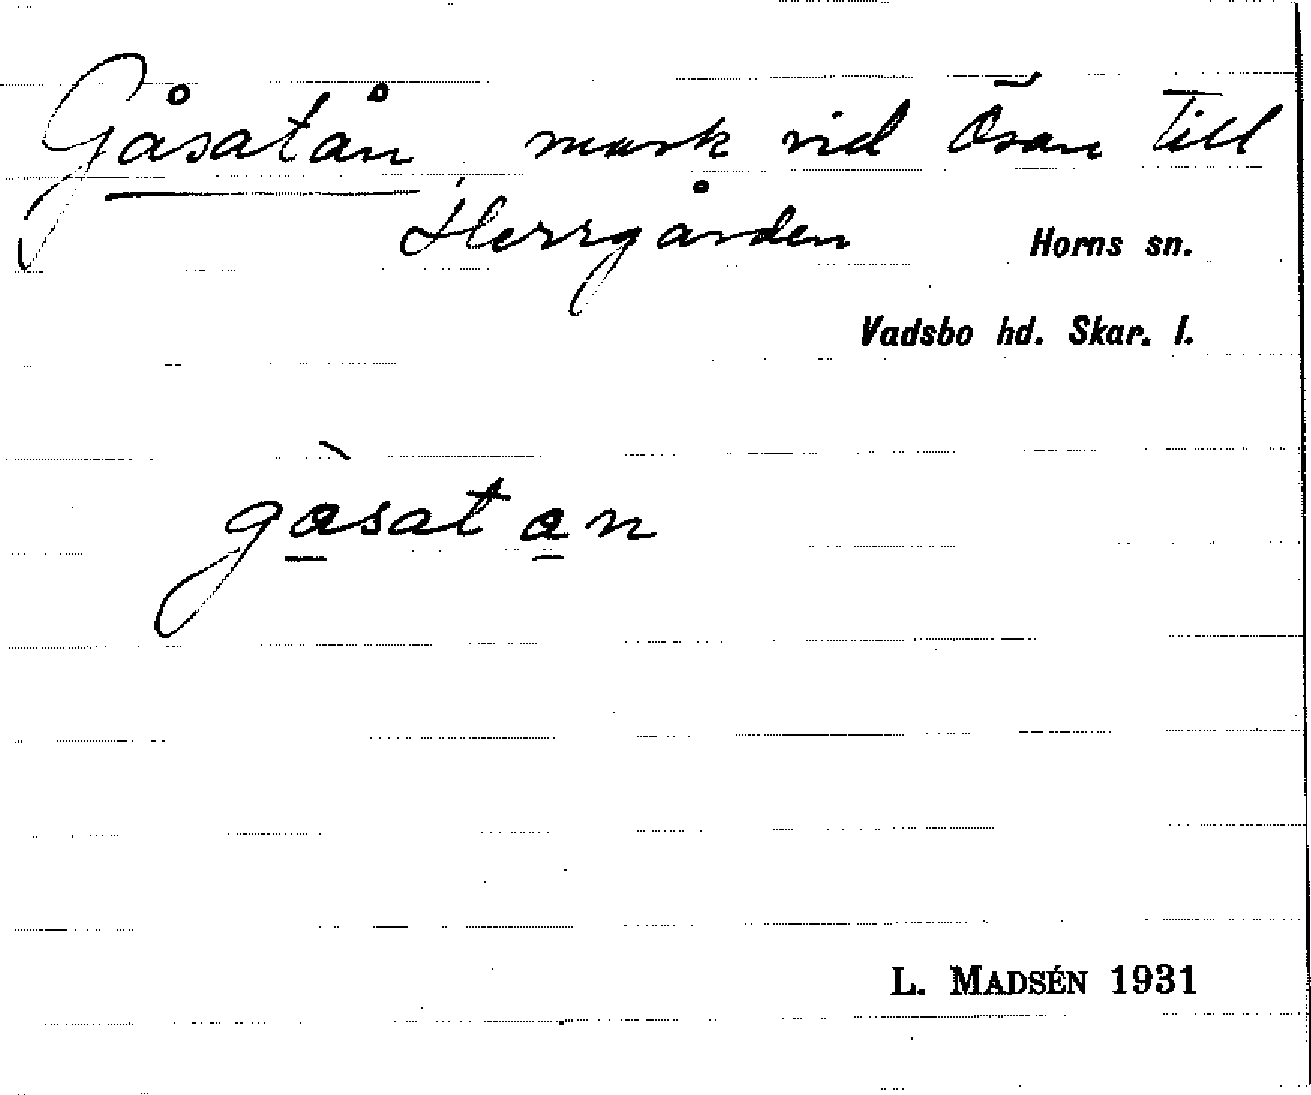 Gåsatån, mark vid Ösan till
Herrgården
Horns sn.
Vadsbo hd. Skar. l.
gàsatan
L. MADSÉN 1931